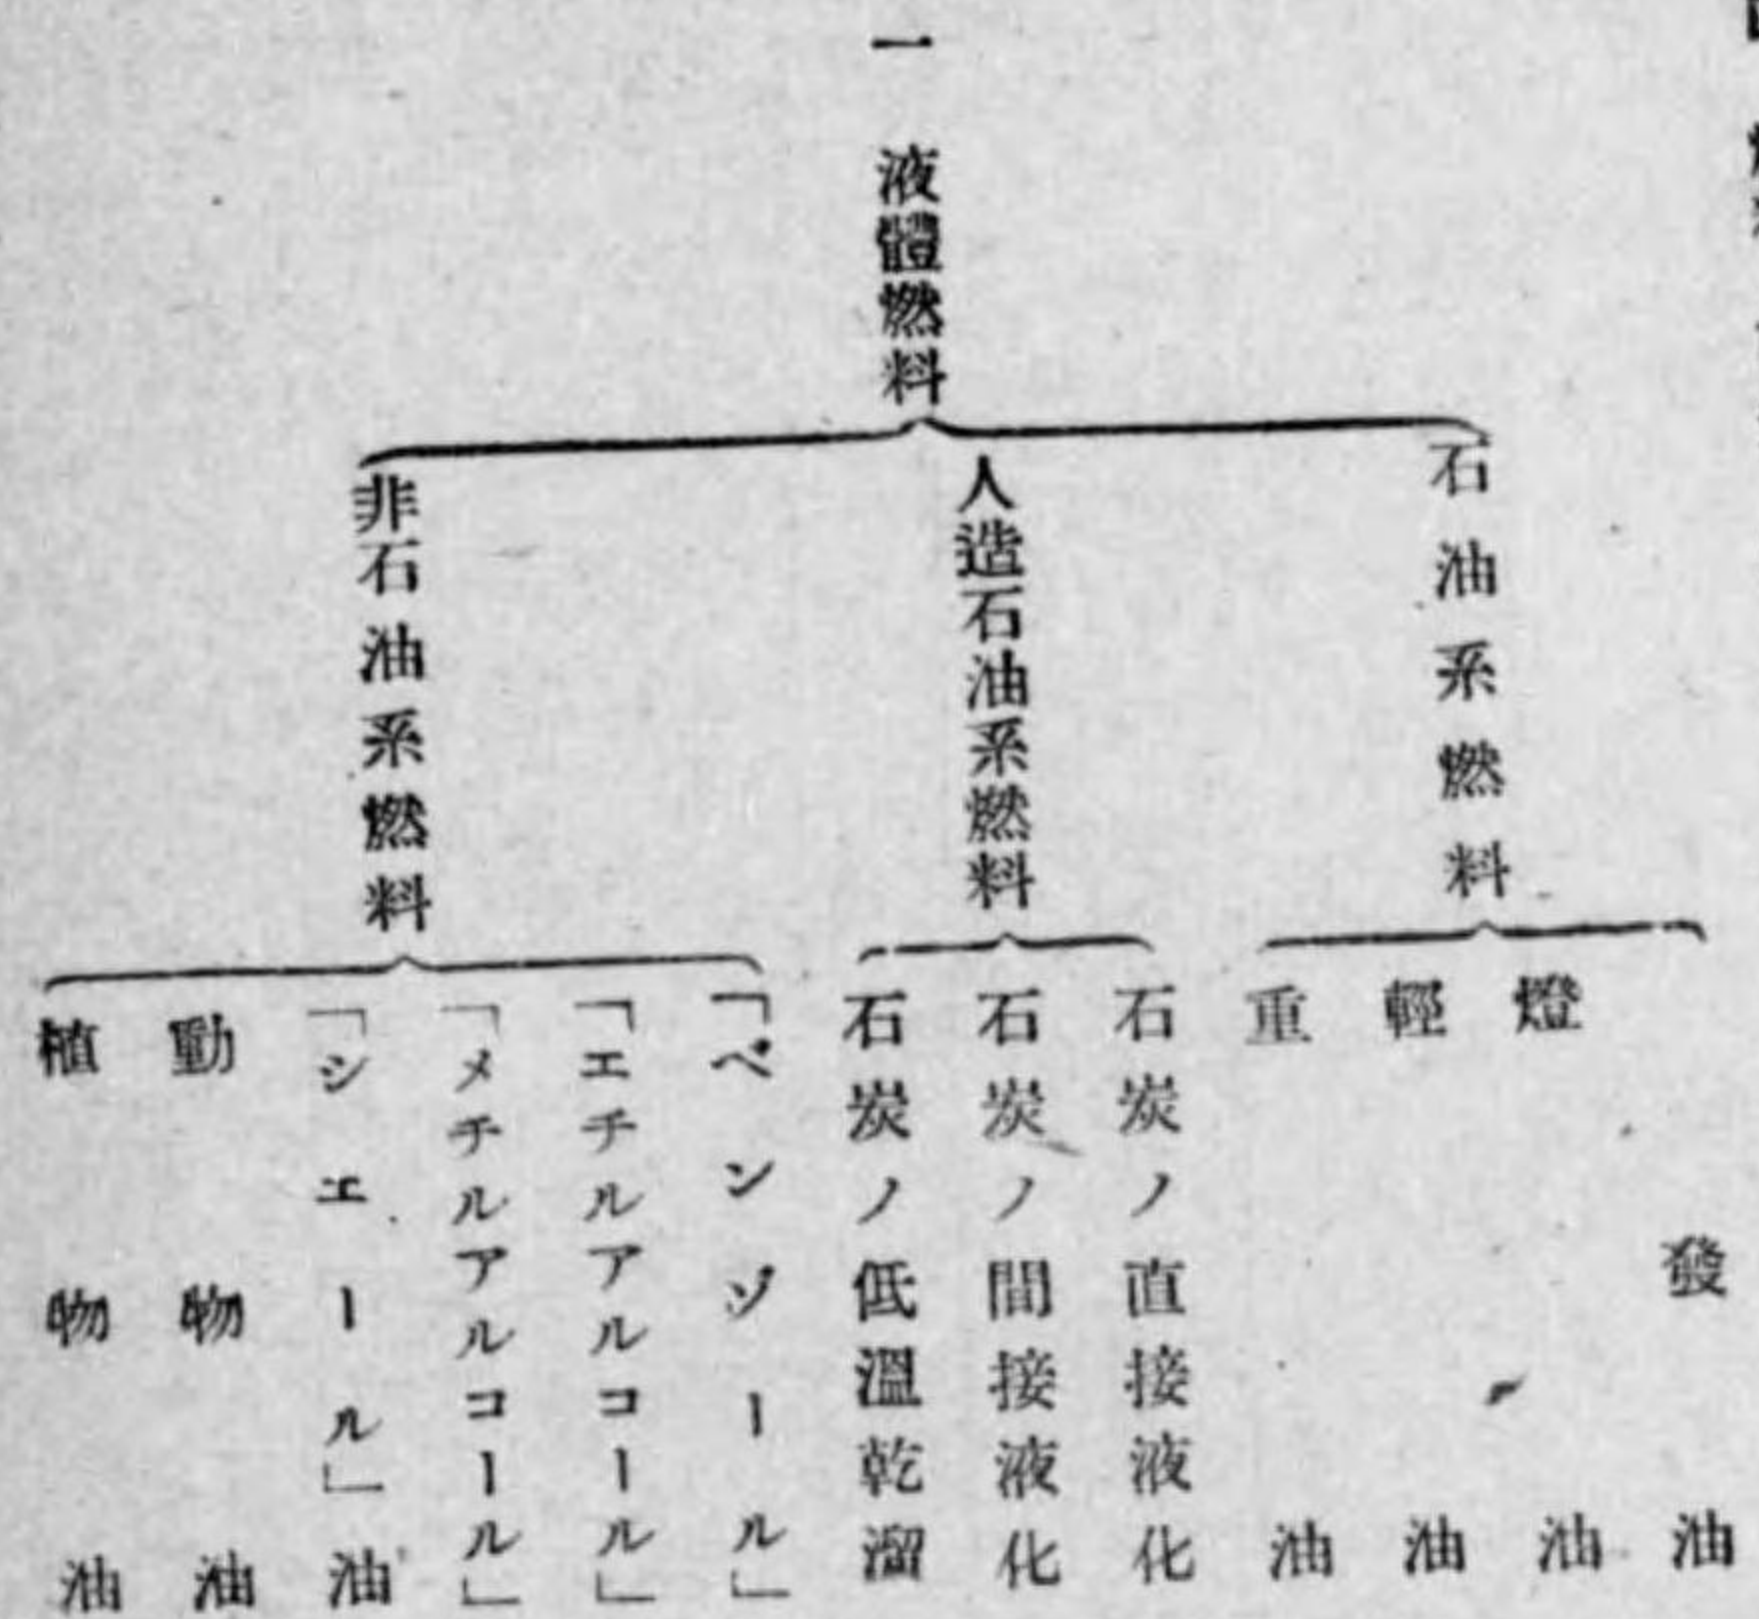 一 液體燃料
石油系燃料
發油
燈油
輕油
重油
人造石油系燃料
石炭ノ直接液化
石炭ノ間接液化
石炭ノ低溫乾溜
非石油系燃料
「ベンゾール」
「エチルアルコール」
「メチルアルコール」
「シエール」油
動物油
植物油